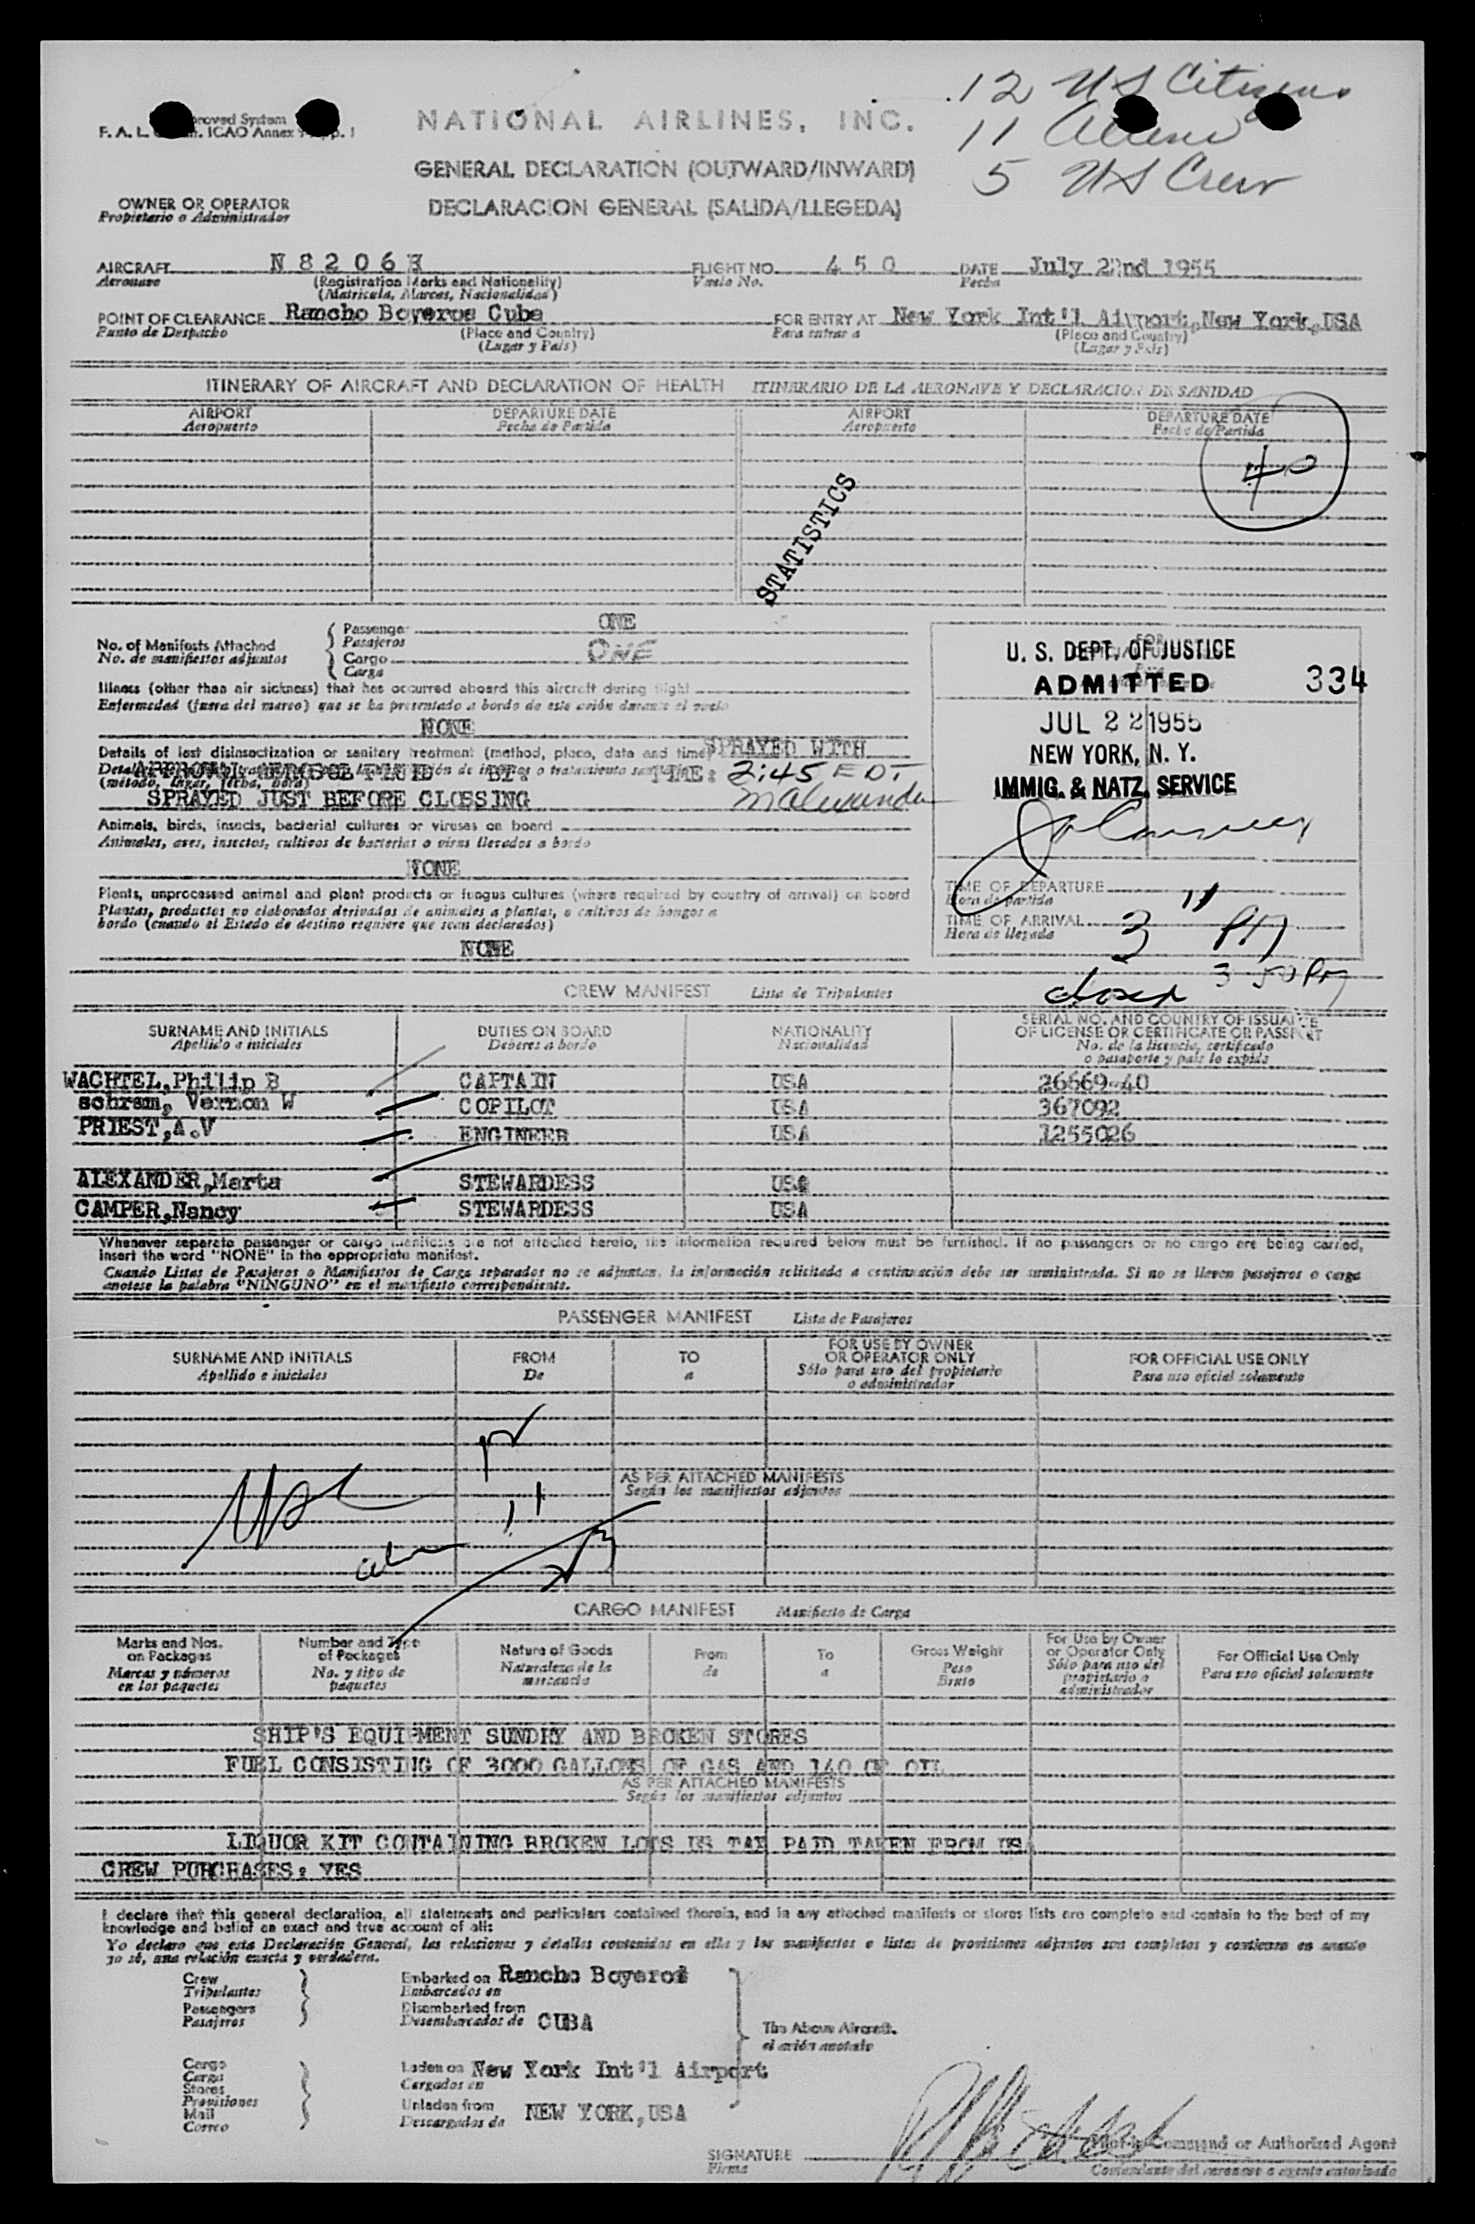 12 US Citizens
11 Aliens
5 US Crew
NATIONAL AIRLINES, INC.
GENERAL DECLARATION (OUTWARD/INWARD)
DECLARACION GENERAL (SALIDA/LLEGEDA)
proved System
F. A. L. ICAO Annex
OWNER OR OPERATOR
Propietario o Administrador
AIRCRAFT N 8 2 0 6 H FLIGHT NO. 4 5 0 DATE July 22nd 1955
Aeronave (Registration Marks and Nationality) Vuelo No. Fecha
(Matricula, Marcas, Nacionalidad)
POINT OF CLEARANCE Rancho Boyeros Cuba FOR ENTRY AT New York Int'l Airport, New York, USA
Punto de Despacho (Place and Country) Para entrar a (Place and Country)
(Lugar y Pais) (Lugar y Pais)
ITINERARY OF AIRCRAFT AND DECLARATION OF HEALTH ITINERARIO DE LA AERONAVE Y DECLARACION DE SANIDAD
AIRPORT DEPARTURE DATE AIRPORT DEPARTURE DATE
Aeropuerto Fecha de Partida Aeropuerto Fecha de Partida
40
STATISTICS
No. of Manifests Attached Passenger ONE
No. de manifiestos adjuntos Pasajeros
Cargo ONE
Carga
Illness (other than air sickness) that has occurred aboard this aircraft during flight
Enfermedad (fuera del mareo) que se ha presentado a bordo de este avión durante el vuelo
NONE
Details of last disinsectization or sanitary treatment (method, place, date and time) SPRAYED WITH
APPROVED AEROSOL FLUID BY. TIME: 2:45 EDT
(método, lugar, fecha, hora)
SPRAYED JUST BEFORE CLOSSING M Alexander
Animals, birds, insects, bacterial cultures or viruses on board
Animales, aves, insectos, cultivos de bacterias o virus llevados a bordo
NONE
Plants, unprocessed animal and plant products or fungus cultures (where required by country of arrival) on board
Plantas, productos no elaborados derivados de animales a plantas, o cultivos de hongos a
bordo (cuando el Estado de destino requiere que sean declarados)
NONE
U. S. DEPT. OF JUSTICE
ADMITTED 334
JUL 22 1955
NEW YORK, N. Y.
IMMIG. & NATZ. SERVICE
TIME OF DEPARTURE
Hora de partida
TIME OF ARRIVAL 3 11 PM
Hora de llegada
closed 3 50 PM
CREW MANIFEST Lista de Tripulantes
SURNAME AND INITIALS DUTIES ON BOARD NATIONALITY SERIAL NO. AND COUNTRY OF ISSUANCE
OF LICENSE OR CERTIFICATE OR PASSPORT
Apellido e iniciales Deberes a bordo Nacionalidad No. de la licencia, certificado
o pasaporte y pais lo expide
WACHTEL, Philip B CAPTAIN USA 26669-40
schram, Vernon W COPILOT USA 367092
PRIEST, A.V ENGINEER USA 1255026
ALEXANDER, Marta STEWARDESS USA
CAMPER, Nancy STEWARDESS USA
Whenever separate passenger or cargo manifests are not attached hereto, the information required below must be furnished. If no passengers or no cargo are being carried,
insert the word "NONE" in the appropriate manifest.
Cuando Listas de Pasajeros o Manifiestos de Carga separados no se adjuntan, la información solicitada a continuación debe ser suministrada. Si no se llevan pasajeros o carga
anotese la palabra "NINGUNO" en el manifiesto correspondiente.
PASSENGER MANIFEST Lista de Pasajeros
SURNAME AND INITIALS FROM TO FOR USE BY OWNER
OR OPERATOR ONLY FOR OFFICIAL USE ONLY
Apellido e iniciales De a Sólo para uso del propietario
o administrador Para uso oficial solamente
AS PER ATTACHED MANIFESTS
Según los manifiestos adjuntos
USC 12
alien 11
23
CARGO MANIFEST Manifiesto de Carga
Marks and Nos. on Packages Number and Type of Packages Nature of Goods From To Gross Weight For Use by Owner or Operator Only For Official Use Only
Marcas y números en los paquetes No. y tipo de paquetes Naturaleza de la mercancia de a Peso Bruto Sólo para uso del propietario o administrador Para uso oficial solamente
SHIP'S EQUIPMENT SUNDRY AND BROKEN STORES
FUEL CONSISTING OF 3000 GALLONS OF GAS AND 140 OF OIL
AS PER ATTACHED MANIFESTS
Según los manifiestos adjuntos
LIQUOR KIT CONTAINING BROKEN LOTS US TAX PAID TAKEN FROM USA
CREW PURCHASES: YES
I declare that this general declaration, all statements and particulars contained therein, and in any attached manifests or stores lists are complete and contain to the best of my
knowledge and belief an exact and true account of all:
Yo declaro que esta Declaración General, las relaciones y detalles contenidos en ella y los manifiestos o listas de provisiones adjuntos son completos y contienen en cuanto
yo sé, una relación exacta y verdadera.
Crew Embarked on Rancho Boyeros
Tripulantes Embarcados en
Passengers Disembarked from CUBA
Pasajeros Desembarcados de
The Above Aircraft.
el avión anotado
Cargo Laden on New York Int'l Airport
Carga Cargados en
Stores
Provisiones Unladen from NEW YORK, USA
Mail Descargados de
Correo
SIGNATURE Pilot-in-Command or Authorized Agent
Firma Comandante del aeronave o agente autorizado